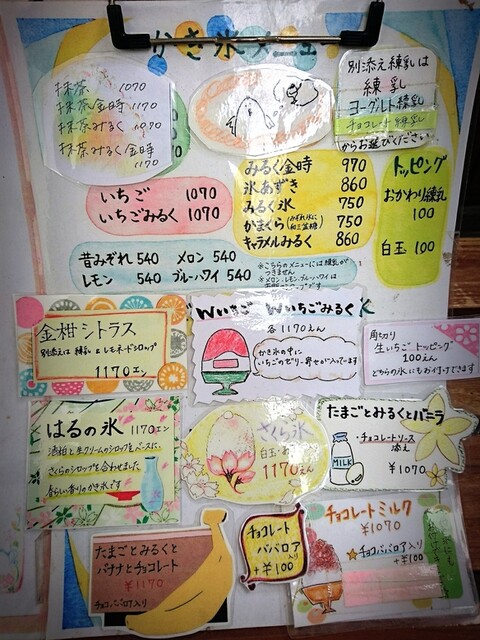 かき氷メニュー
抹茶 1070
抹茶/金時 1170
抹茶みるく 1070
抹茶みるく/金時
1170
別添え練乳は
練乳
ヨーグルト練乳
チョコレート練乳
からお選びください
いちご 1070
いちごみるく 1070
みるく/金時 970
氷あずき 860
みるく氷 750
かまくら 750
キャラメルみるく 860
トッピング
おかわり練乳
100
白玉 100
昔みぞれ 540 メロン 540
レモン 540 ブルーハワイ 540
※こちらのメニューには練乳が
つきません
※メロン、レモン、ブルーハワイは
金柑シトラス
別添えは 練乳 & レモネードシロップ
1170エン
Wいちご Wいちごみるく
各1170えん
かき氷の中に
いちごのゼリー寄せが入ってます
角切り
生いちごトッピング
100えん
どちらの氷にもお付けできます
はるの氷 1170エン
酒粕と生クリームのシロップをベースに、
さくらのシロップを合わせました
春らしい香りのかき氷です
さくら氷
白玉
1170えん
たまごとみるくとバニラ
・チョコレートソース
添え
MILK
¥1070
たまごとみるくと
バナナとチョコレート
¥1170
チョコババロア入り
チョコレート
ババロア
入り
+¥100
チョコレートミルク
¥1070
チョコババロア入り
+¥100